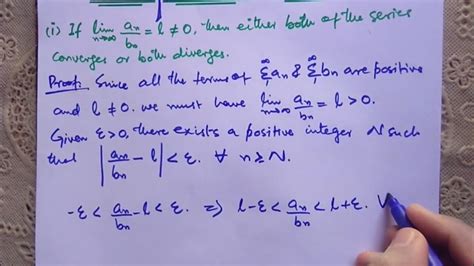 (i) If lim n→∞ an/bn = l ≠ 0, then either both of the series
converges or both diverges.
Proof: Since all the terms of Σ1 an & Σ1 bn are positive
and l ≠ 0. we must have lim n→∞ an/bn = l > 0.
Given ε > 0, there exists a positive integer N such
that |an/bn - l| < ε. ∀ n ≥ N.
-ε < an/bn - l < ε. ⇒ l-ε < an/bn < l+ε. ∀